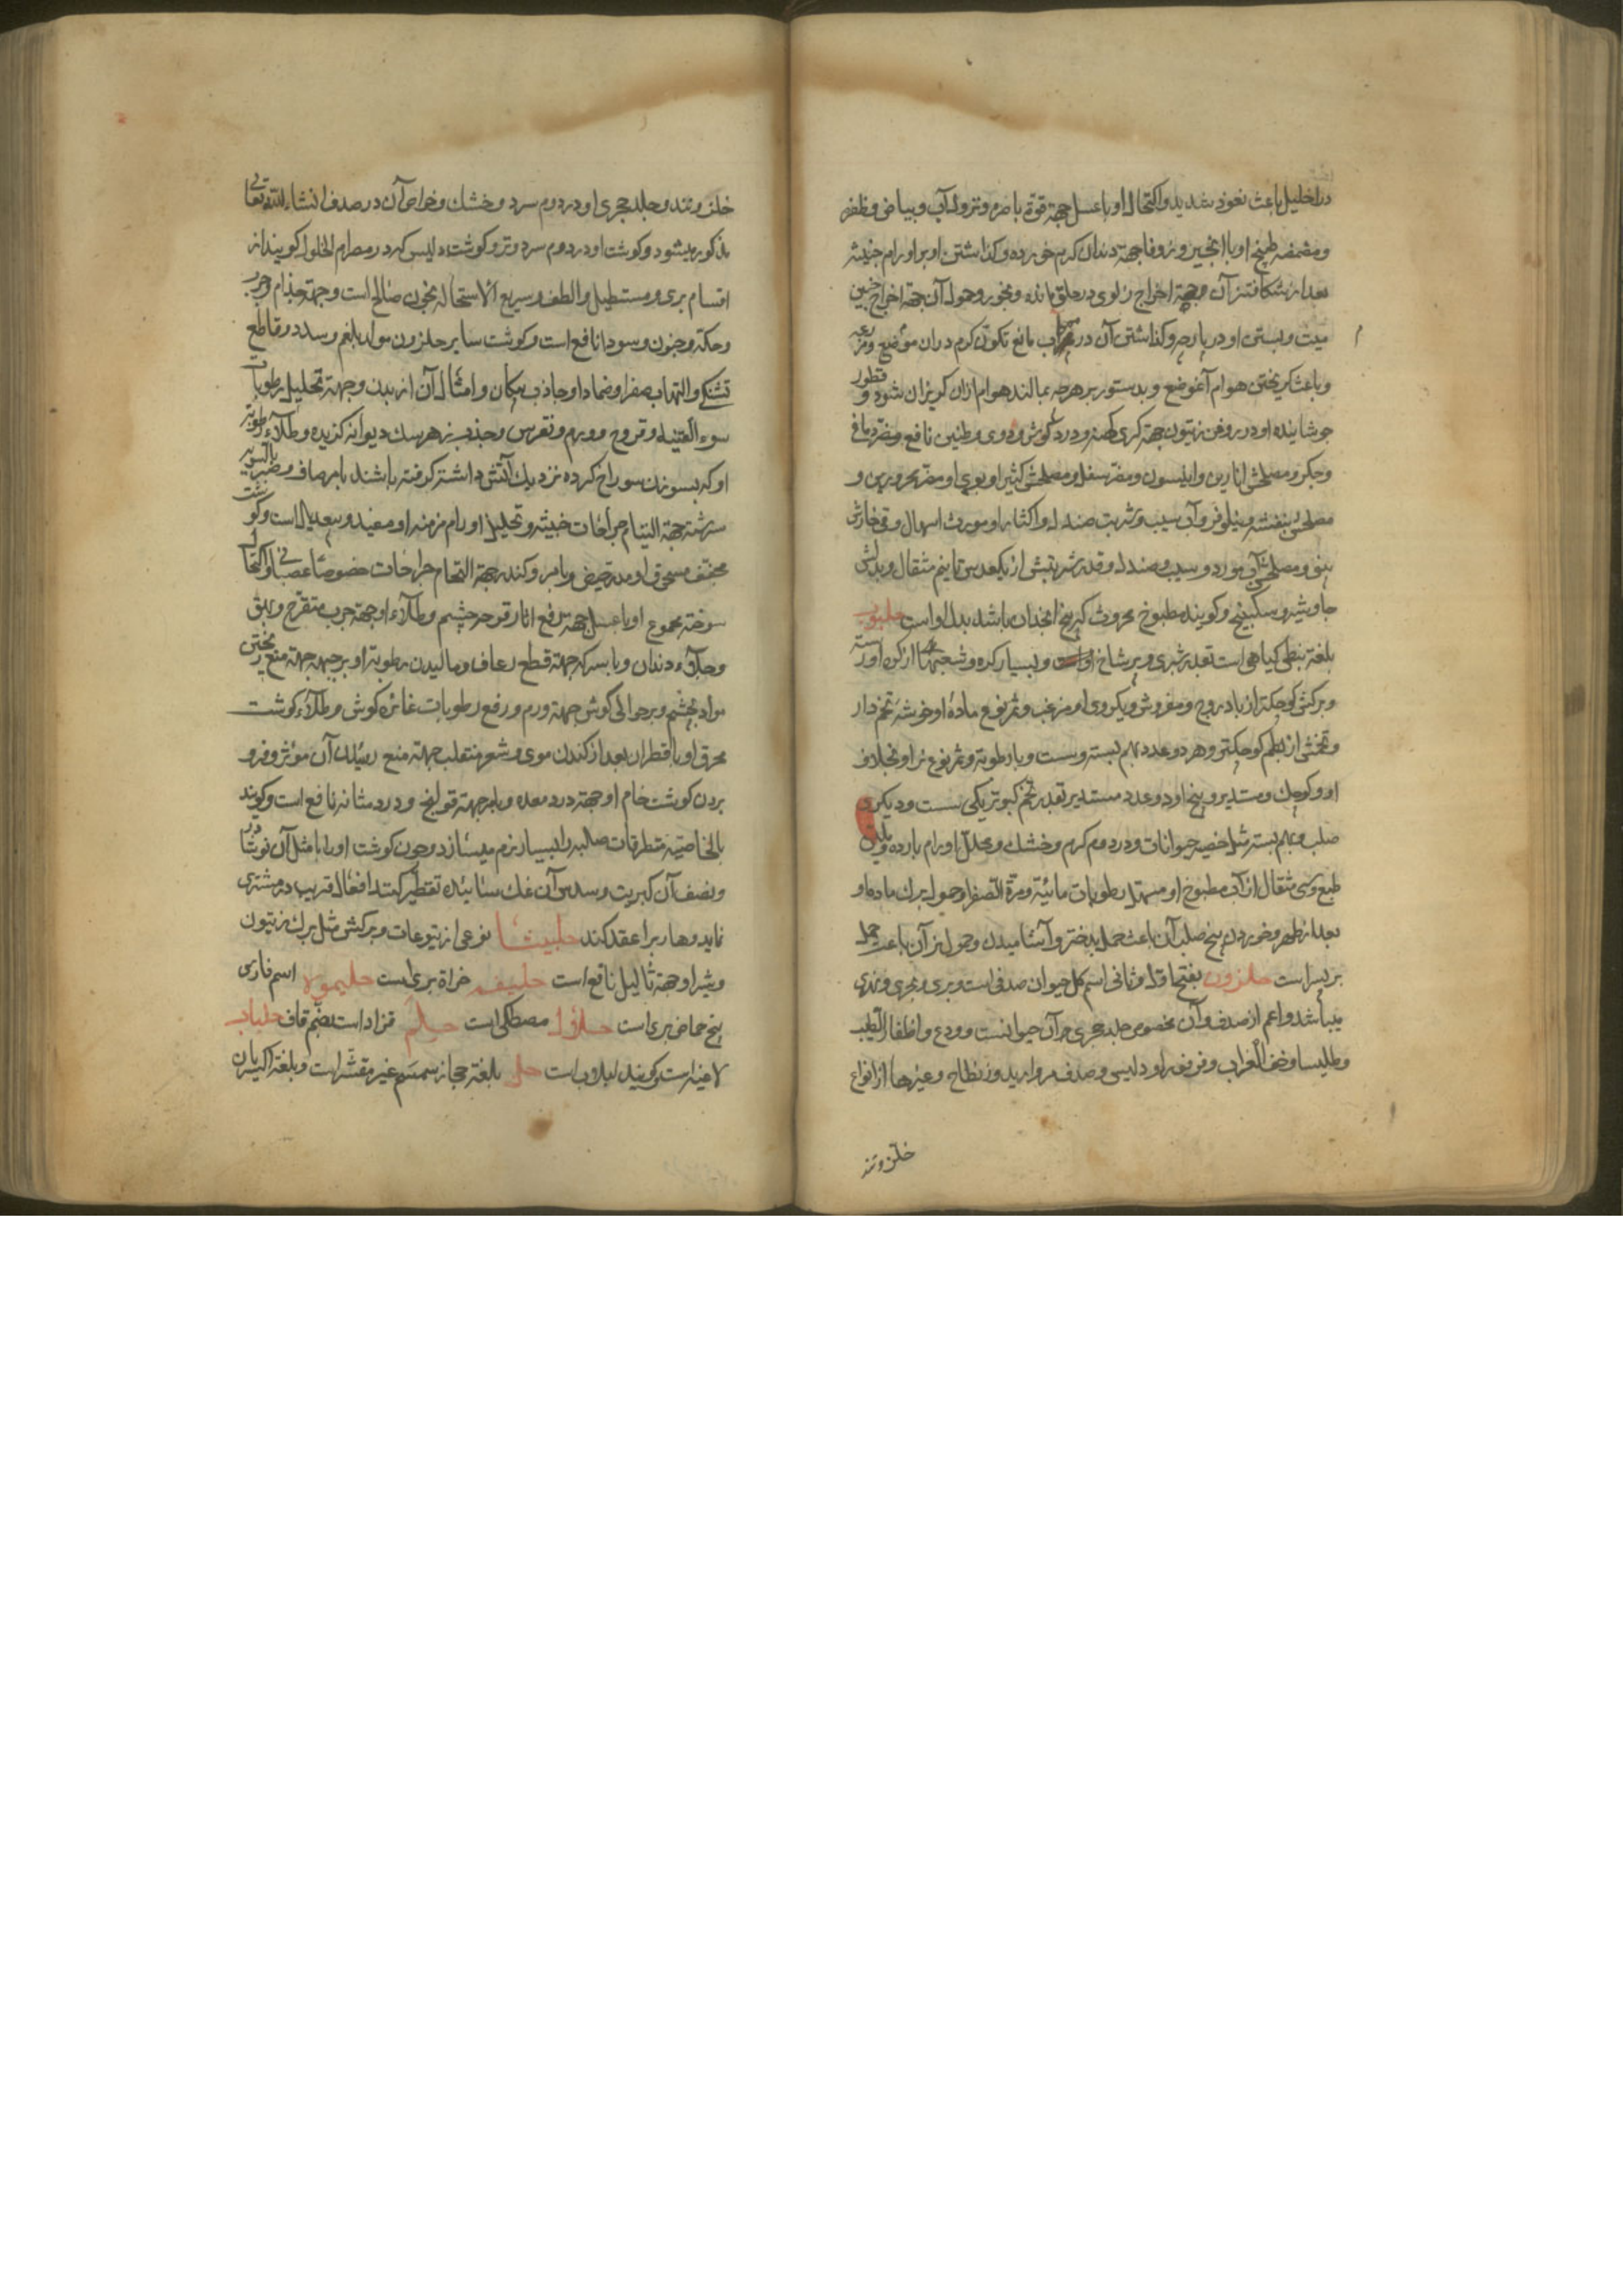 در احلیل باعث نعوذ شدید و اکتحال او با عسل جهة قوة باصره و نزول آب و بیاض و ظفره
و مضمضه طبیخ او با انجیر و زوفا جهة دندان کرم خورده و گذاشتن او بر اورام خبیثه
بعد از شکافتن آن و جهة اخراج زلوی در حلق مانده و بخور و حمول آن جهة اخراج جنین
میت و بستن او در پارچه و گذاشتن آن در آب مانع تکون کرم در آن موضع
و باعث گریختن هوام آنموضع و بدستور بر هرچه بمالند هوام از آن گریزان شود و قطور
جوشانیده او در روغن زیتون جهة کری کهنه و درد گوش و دوی و طنین نافع و مضر دماغ
و جگر و مصلحش انارین و انیسون و مضر سفل و مصلحش کثیرا و بوی او مضر محرورین و
مصلحش بنفشه و نیلوفر و آب سیب و شربت صندل و اکثار او مورث اسهال و قی خارش
و مصلحش آب مورد و سیب و صندل و قدر شربتش از یکعدس تا نیم مثقال و بدلش
جاوشیر و سکبینج و گویند مطبوخ محروث که بیخ انجدان باشد بدل او است حلبوب
بلغة نبطی گیاهی است بقدر شبری و پر شاخ و بسیار گره و شعبهها از گره او رسته
و برگش کوچکتر از بادروج و مفروش و یکروی او مزغب و ثمر نوع مادۀ او خوشه تخم دار
و تخمش از بطم کوچکتر و هر دو عدد بهم بسته و سست و با رطوبة و ثمر نوع نر او بخلاف
او و کوچک و مستدیر و بیخ او دو عدد مستدیر بقدر تخم کبوتر یکی سست و دیگری
صلب و بهم بسته مثل خصیه حیوانات و در دوم گرم و خشک و محلل اورام بارده و ملین
طبع و سی مثقال از آب مطبوخ او مسهل رطوبات مائیة و مرة الصفرا و حمول برگ ماده او
بعد از طهر و خوردن بیخ صلب آن باعث حمل بدختر و آشامیدن و حمول نر آن باعث حمل
بر پسر است حلزون بفتح اول و ثانی اسم کل حیوان صدفی است و بری و بحری و نهری
میباشد و اعم از صدف و آن مخصوص جلد حجری آن حیوانست و ودع و اظفار الطیب
و طلیسا و خف الغراب و فرفیرا و دلیس و صدف مروارید و زنطاح و غیرها از انواع
حلزونند
حلزونند و جلد حجری او در دوم سرد و خشک و خواص آن در صدف انشاء الله تعالی
مذکور میشود و گوشت او در دوم سرد و تر و گوشت دلیس که در مصر ام الخلول گویند از
اقسام بری و مستطیل و الطف و سریع الاستحاله بخون صالح است و جهة جذام و جرب
و حکه و جنون و سودا نافع است و گوشت سایر حلزون مولد بلغم و سدد و قاطع
تشنگی و التهاب صفرا و ضماد او جاذب پیکان و امثال آن از بدن و جهة تحلیل رطوبات
سوء القنیه و قروح و ورم و نقرس و جذب زهر سگ دیوانه گزیده و طلاء رطوبة
او که بسوزن سوراخ کرده نزدیک آتش داشته گرفته باشند با مر صاف و صبر بالسویه
سرشته جهة التیام جراحات خبیثه و تحلیل اورام مزمنه او مفید و بیعدیل است و گوشت
مجفف مسحوق او مدر حیض و با مر و کندر جهة التحام جراحات خصوصا عصبانی و اکتحال
سوخته مجموع او با عسل جهة رفع آثار قرحه چشم و طلاء او جهة جرب متقرح و بهق
و جلاء دندان و با سرکه جهة قطع رعاف و مالیدن رطوبة او بر جبهه جهة منع ریختن
مواد بچشم و بر حوالی گوش جهة ورم و رفع رطوبات غائره گوش و طلاء گوشت
محرق او با قطران بعد از کندن موی و شعر منقلب جهة منع رستن آن موثر و فرو
بردن گوشت خام او جهة درد معده و با مر جهة قولنج و درد مثانه نافع است و گویند
بالخاصیة متطرقات صلبه را بسیار نرم میسازد و چون گوشت او را با مثل آن نوشادر
و نصف آن کبریت و سدس آن نمک سائیده تقطیر کنند افعال قریب در مشتری
نماید و هارب را عقد کند حلبیثا نوعی از یتوعات و برگش مثل برگ زیتون
و شیر او جهة ثالیل نافع است حلیفه خراة بری است حلیمو اسم فارسی
بیخ حماض بری است حلافا مصطکی است حلم قراد است بضم قاف حلباب
لاغیه است و گویند لبلاب است حل بلغة حجاز سمسم غیر مقشر است و بلغة اکسیریان